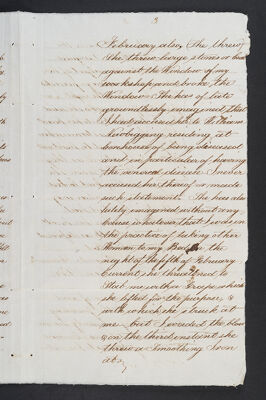 3
February also, She threw
She threw large stones or [brick]
against the Window of my
workshop and broke the
Window She has of late
groundlessly imagined that
I have accused her to William
Newbigging residing at
of being diseased
and in particular of having
the venereal disease I never
accused her thereof or made
such statement. She has also
lately imagined without any
cause whatever that I was in
the practice of taking other
Woman to my Bed On the
night of the fifth of February
Current she threatened to
Stab me with a Grape which
she lifted for the purpose, &
with which she struck at
me — but I evaded the blow
& on the third instant she
threw a Smoothing Iron
at